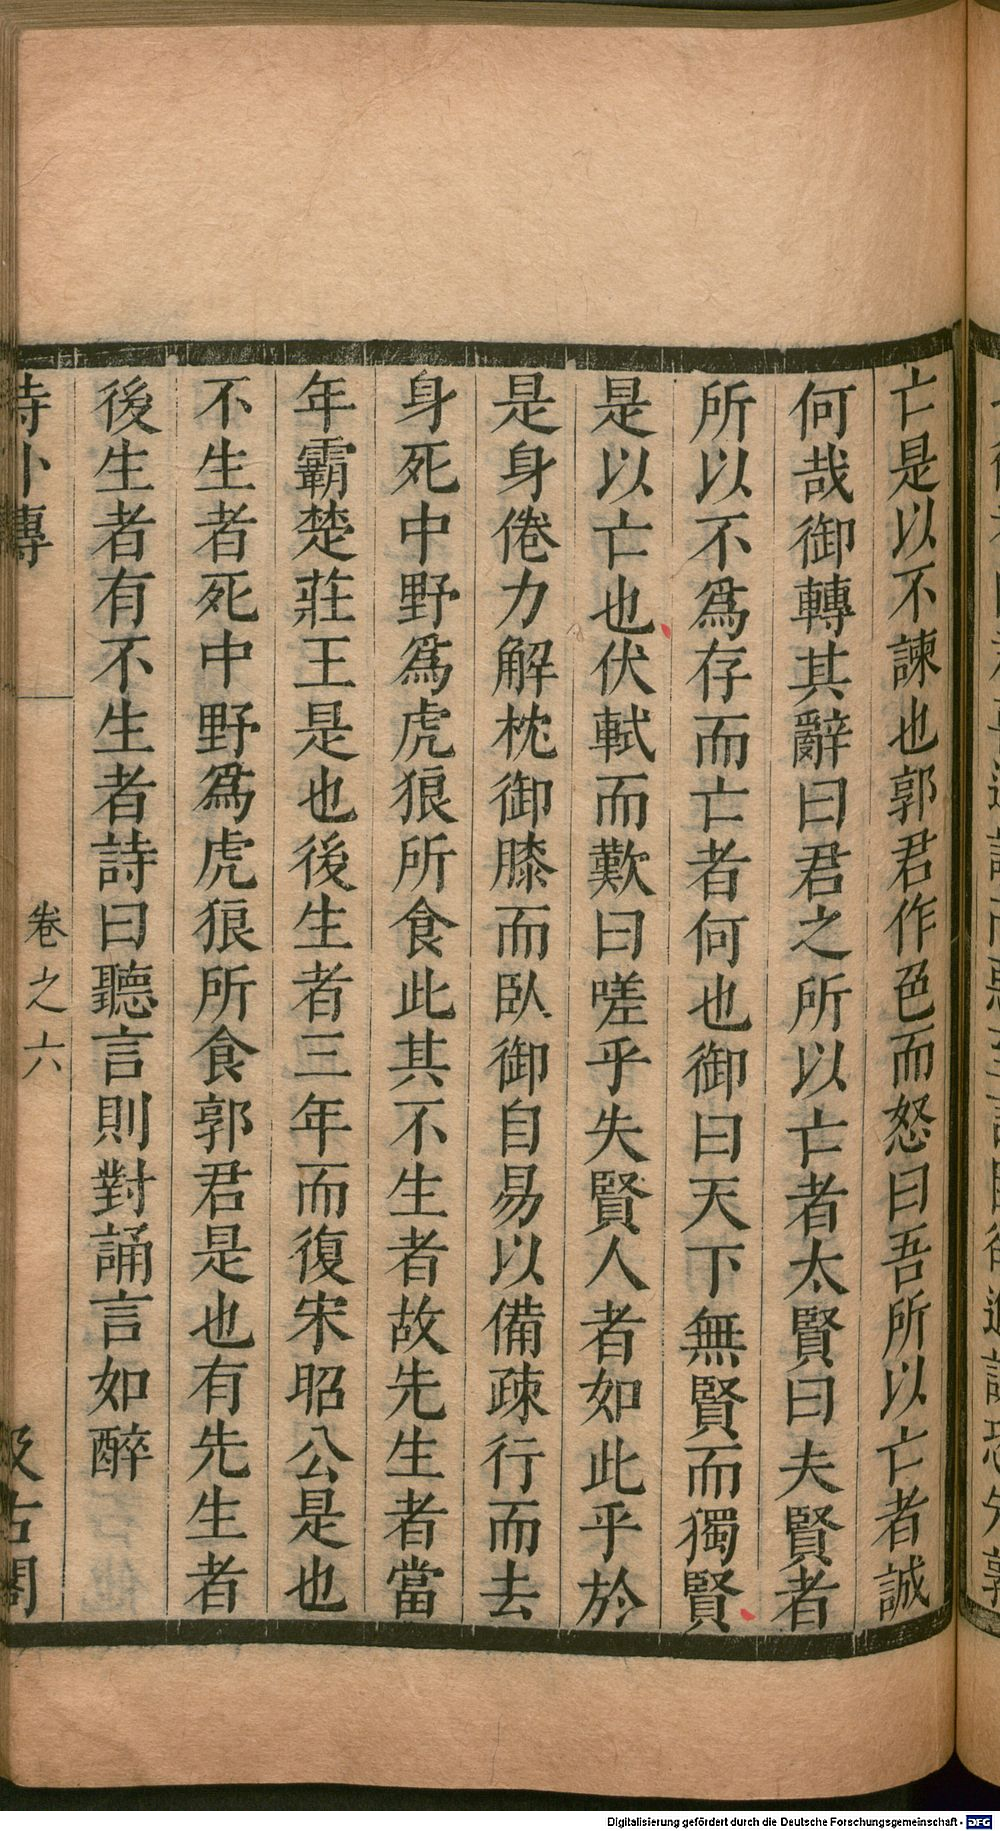 亡是以不諫也郭君作色而怒曰吾所以亡者誠
何哉御轉其辭曰君之所以亡者太賢曰夫賢者
所以不爲存而亡者何也御曰天下無賢而獨賢
是以亡也伏軾而歎曰嗟乎失賢人者如此乎於
是身倦力解枕御膝而臥御自易以備疎行而去
身死中野爲虎狼所食此其不生者故先生者當
年霸楚莊王是也後生者三年而復宋昭公是也
不生者死中野爲虎狼所食郭君是也有先生者
後生者有不生者詩曰聽言則對誦言如醉
詩外傳 卷之六 汲古閣
Digitalisierung gefördert durch die Deutsche Forschungsgemeinschaft - DFG